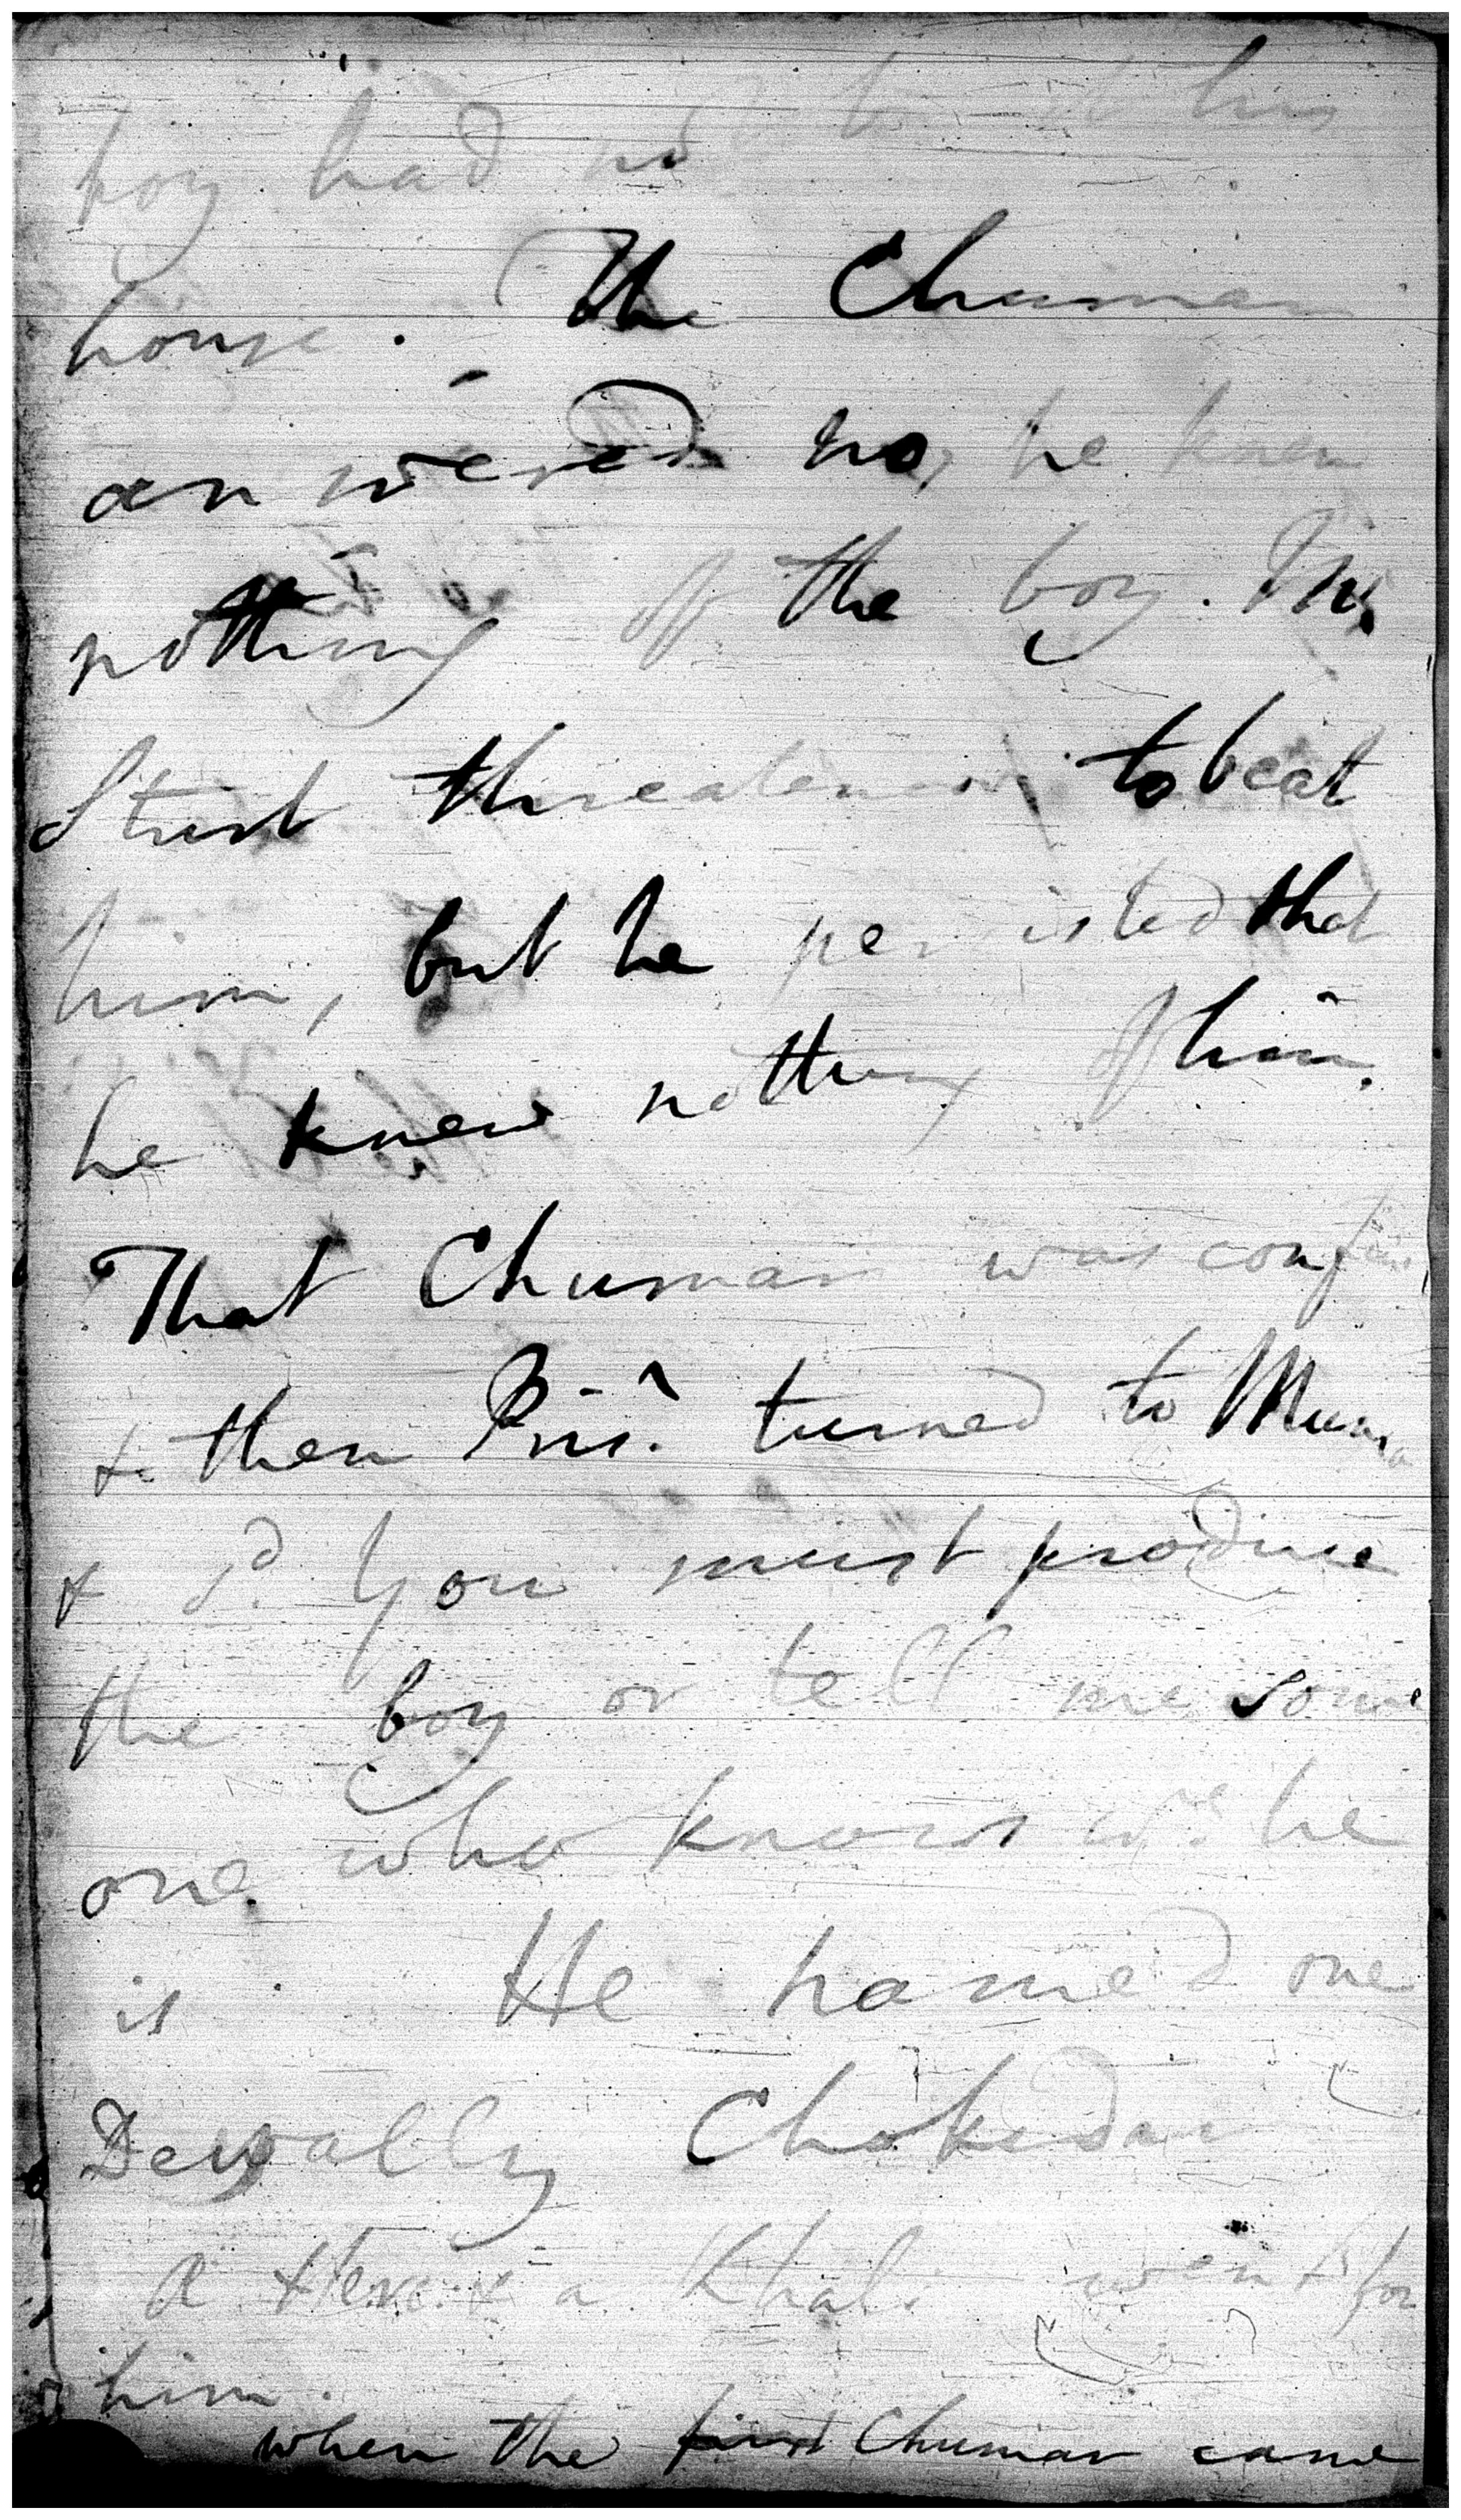 boy had not his
house. The Chuman
answered no, he knew
nothing of the boy. Pris
threatened to beat
him, but he persisted that
he knew nothing of him.
That Chuman was
& then Pris.r turned to
& s.d You must produce
the boy or tell me some
one who knows he
is He named one
Chokedar
a went for
him.
when the first Chuman came